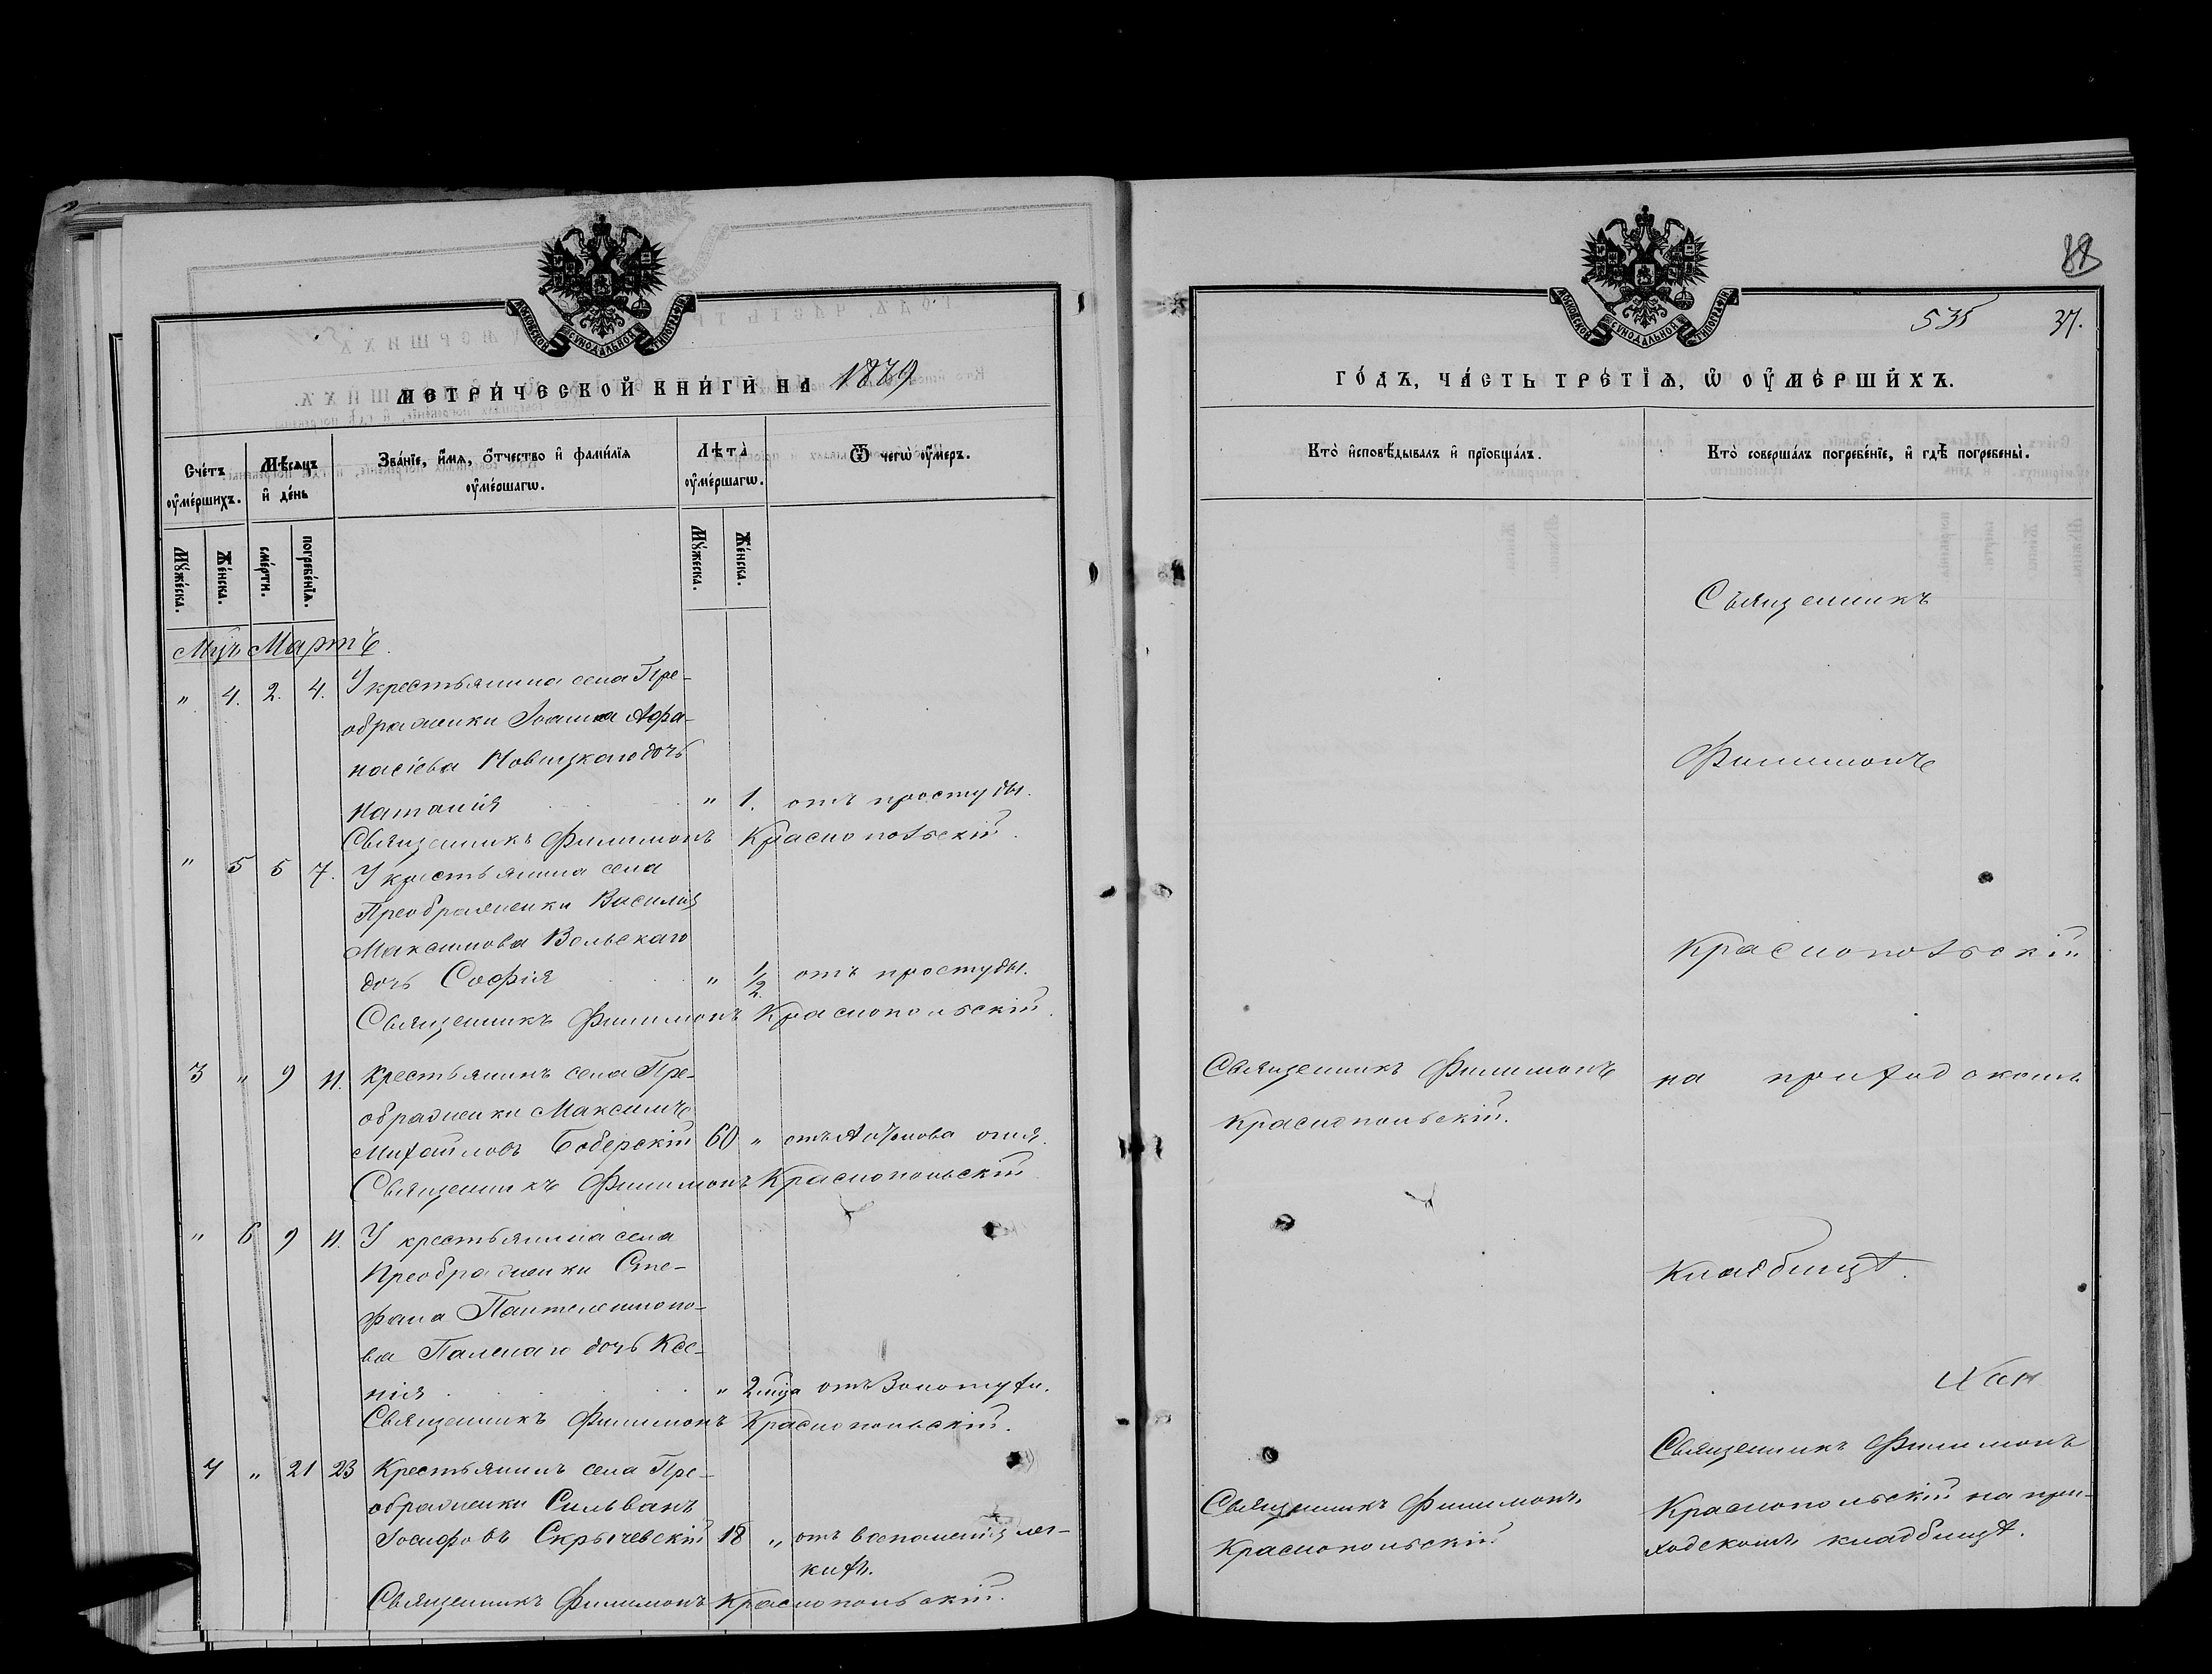 МОСКОВСКОЙ СУНОДАЛЬНОЙ ТИПОГРАФІИ
МЕТРИЧЕСКОЙ КНИГИ НА 1889
Счетъ оумершихъ.
Мѣсяцъ и день
Званіе, имя, отчество и фамилія оумершагѡ.
Лѣта оумершагѡ.
Ѿ чегѡ оумеръ.
Мужеска.
Женска.
смерти.
погребенія.
Мужеска.
Женска.
Мцъ Мартъ.
" 4. 2. 4. У крестьянина села Пре-
ображенки Іоанна Афа-
насіева Новицкаго дочь
Наталія " 1. отъ простуды.
Священникъ Филимонъ Краснопольскій.
" 5 5 7. У крестьянина села
Преображенки Василія
Максимова Вольскаго
дочь Софія " 1/2. отъ простуды.
Священникъ Филимонъ Краснопольскій.
3 " 9 11. Крестьянинъ села Пре-
ображенки Максимъ
Михайловъ Боберскій 60 " отъ Антонова огня.
Священникъ Филимонъ Краснопольскій
" 6 9 11. У крестьянина села
Преображенки Сте-
фана Пантелеимоно-
ва Паленаго дочь Ксе-
нія " 2 мца отъ Золотухи.
Священникъ Филимонъ Краснопольскій.
4 " 21 23 Крестьянинъ села Пре-
ображенки Сильванъ
Іосифовъ Скрычевскій 18 " отъ воспаленія лег-
кихъ.
Священникъ Филимонъ Краснопольскій.
МОСКОВСКОЙ СУНОДАЛЬНОЙ ТИПОГРАФІИ
88
535 37.
ГОДЪ, ЧАСТЬ ТРЕТІЯ, Ѡ ОУМЕРШИХЪ.
Кто исповѣдывалъ и пріобщалъ.
Кто совершалъ погребеніе, и гдѣ погребены.
Священникъ
Филимонъ
Краснопольскій
Священникъ Филимонъ
Краснопольскій.
на приходскомъ
Кладбищѣ.
Священникъ Филимонъ
Краснопольскій на при-
ходскомъ кладбищѣ.
Священникъ Филимонъ
Краснопольскій